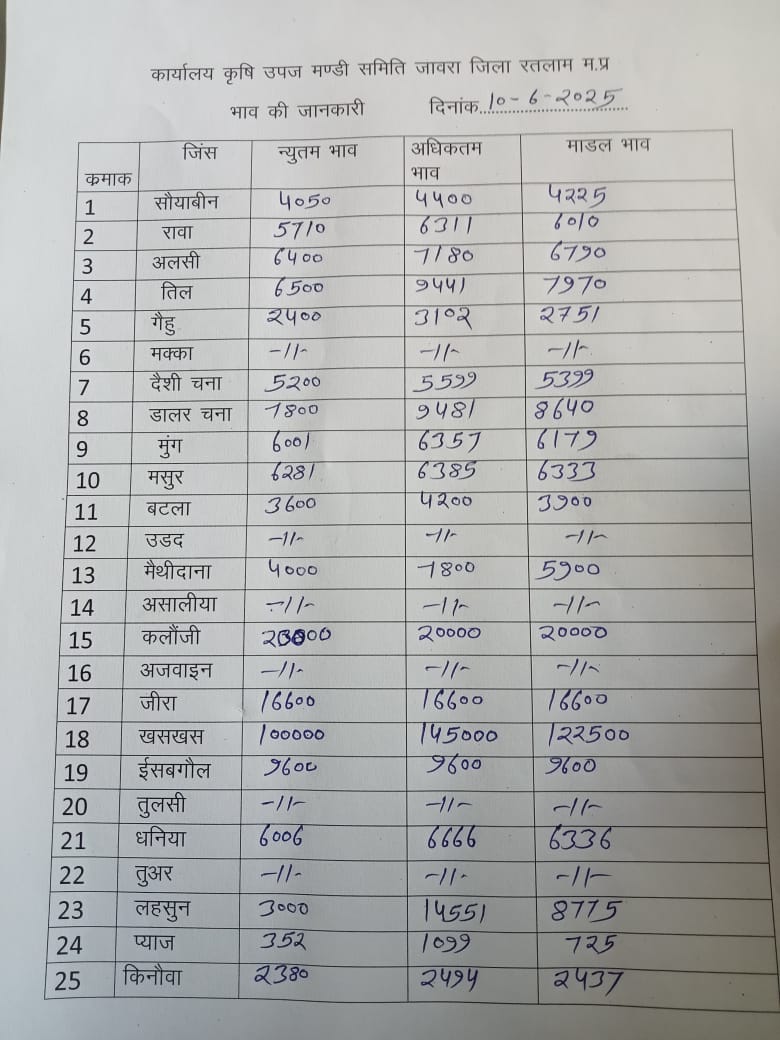 कार्यालय कृषि उपज मण्डी समिति जावरा जिला रतलाम म.प्र
भाव की जानकारी दिनांक 10-6-2025
कमाक जिंस न्युतम भाव अधिकतम भाव माडल भाव
1 सौयाबीन 4050 4400 4225
2 रावा 5710 6311 6010
3 अलसी 6400 7180 6790
4 तिल 6500 9441 7970
5 गैहु 2400 3102 2751
6 मक्का -11- -11- -11-
7 दैशी चना 5200 5599 5399
8 डालर चना 7800 9481 8640
9 मुंग 6001 6357 6179
10 मसुर 6281 6385 6333
11 बटला 3600 4200 3900
12 उडद -11- -11- -11-
13 मैथीदाना 4000 7800 5900
14 असालीया -11- -11- -11-
15 कलौंजी 20000 20000 20000
16 अजवाइन -11- -11- -11-
17 जीरा 16600 16600 16600
18 खसखस 100000 145000 122500
19 ईसबगौल 9600 9600 9600
20 तुलसी -11- -11- -11-
21 धनिया 6006 6666 6336
22 तुअर -11- -11- -11-
23 लहसुन 3000 14551 8775
24 प्याज 352 1099 725
25 किनौवा 2380 2494 2437